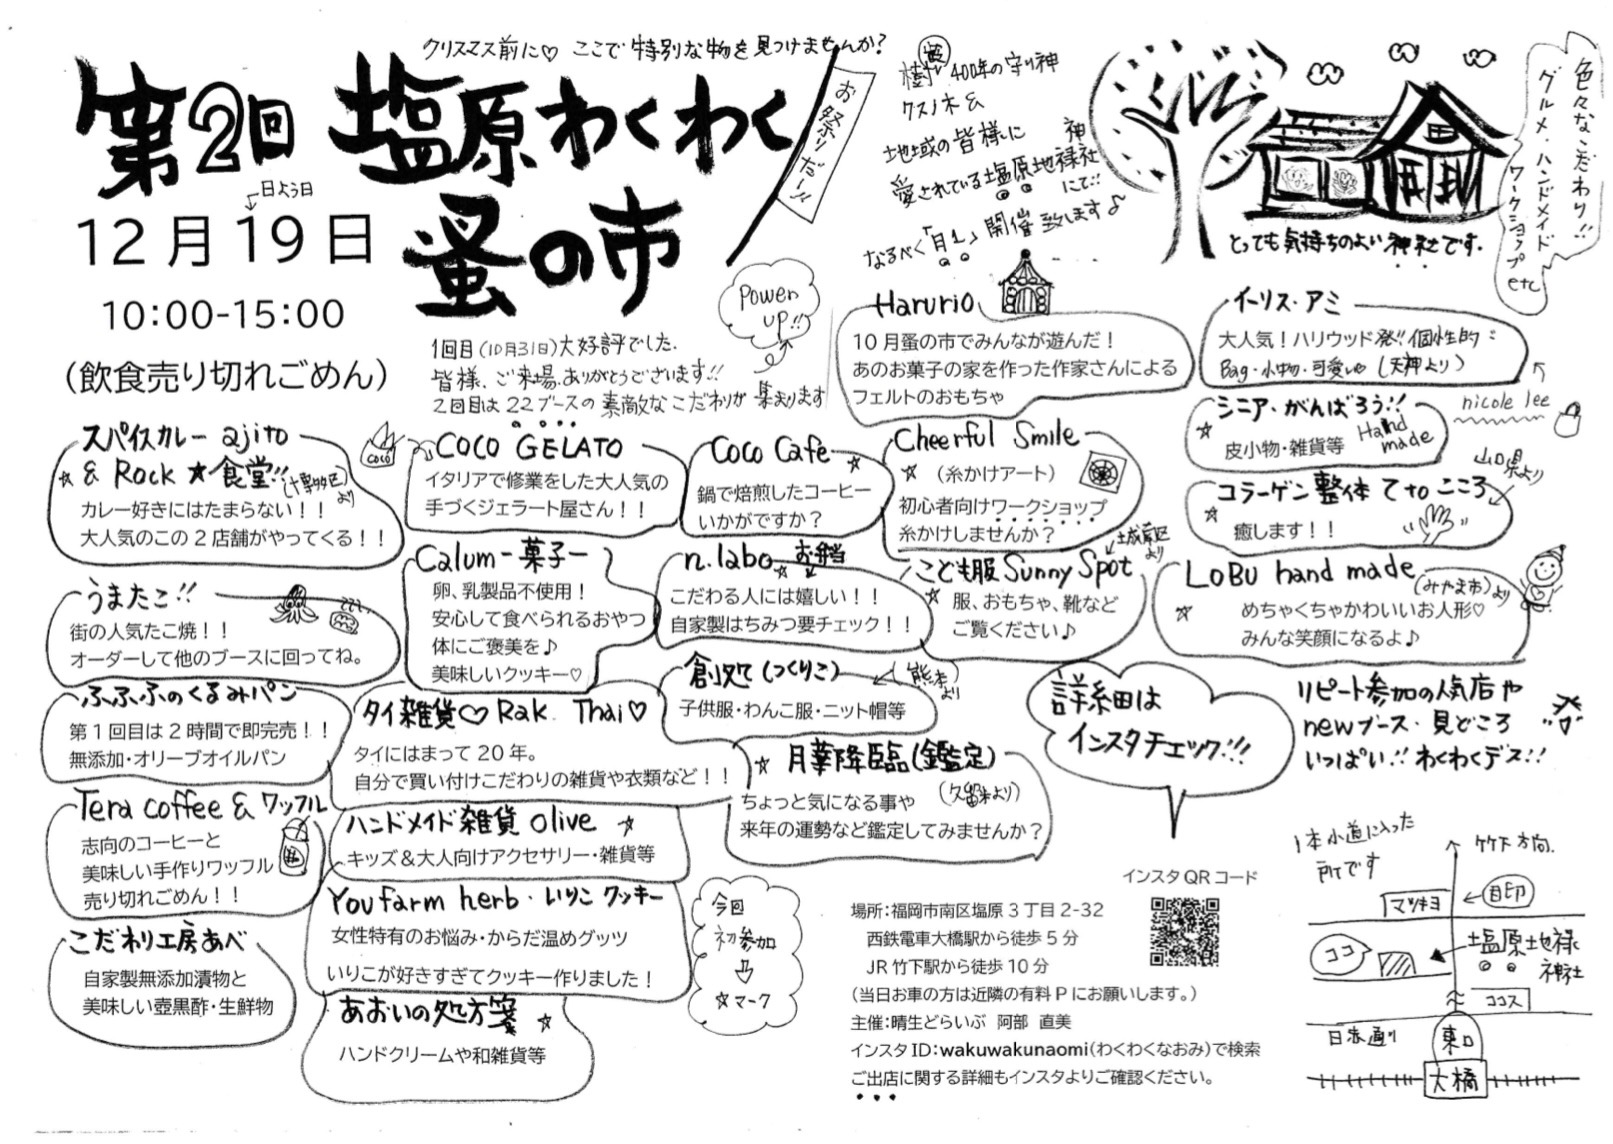 クリスマス前に♡ ここで特別な物を見つけませんか?
第2回 塩原わくわく
蚤の市
お祭りだー!!
日よう日
12月19日
10:00-15:00
(飲食売り切れごめん)
1回目(10月31日)大好評でした.
皆様、ご来場、ありがとうございます!!
2回目は22ブースの素敵なこだわりが集まります
Power
up!!
樹齢400年の守り神
クスノ木&
地域の皆様に
愛されている塩原地禄神社
にて!!
なるべく「月1」開催致します♪
とっても気持ちのよい神社です.
色々なこだわり!!
グルメ・ハンドメイド
ワークショップ
etc
Harurio
10月蚤の市でみんなが遊んだ!
あのお菓子の家を作った作家さんによる
フェルトのおもちゃ
イーリス・アミ
大人気!ハリウッド発!!個性的:
Bag・小物・可愛い♡(天神より)
nicole lee
シニア・がんばろう!!
☆
皮小物・雑貨等 Hand
made
山口県より
コラーゲン整体 てto こころ
☆
癒します!!
スパイスカレー ajito
☆ & Rock ★食堂!!(博多区より)
カレー好きにはたまらない!!
大人気のこの2店舗がやってくる!!
coco
COCO GELATO
イタリアで修業をした大人気の
手づくジェラート屋さん!!
Coco Cafe ☆
鍋で焙煎したコーヒー
いかがですか?
Cheerful Smile
☆ (糸かけアート)
初心者向けワークショップ
糸かけしませんか?
うまたこ!!
街の人気たこ焼!!
オーダーして他のブースに回ってね。
Calumー菓子ー
卵、乳製品不使用!
安心して食べられるおやつ
体にご褒美を♪
美味しいクッキー♡
n.labo ☆ お弁当
こだわる人には嬉しい!!
自家製はちみつ要チェック!!
城南区より
こども服 Sunny Spot
☆ 服、おもちゃ、靴など
ご覧ください♪
LOBU hand made (みやま市)より
☆ めちゃくちゃかわいいお人形♡
みんな笑顔になるよ♪
ふふふのくるみパン
第1回目は2時間で即完売!!
無添加・オリーブオイルパン
タイ雑貨♡Rak Thai♡
タイにはまって20年。
自分で買い付けこだわりの雑貨や衣類など!!
創処(つくりこ) (熊本より)
子供服・わんこ服・ニット帽等
☆ 月華降臨(鑑定)
ちょっと気になる事や (久留米より)
来年の運勢など鑑定してみませんか?
詳細は
インスタチェック!!!
リピート参加の人気店や
newブース・見どころ
いっぱい!! わくわくデス!!
Tera coffee & ワッフル
志向のコーヒーと
美味しい手作りワッフル
売り切れごめん!!
ハンドメイド雑貨 olive ☆
キッズ&大人向けアクセサリー・雑貨等
You farm herb・いりこ クッキー
女性特有のお悩み・からだ温めグッツ
いりこが好きすぎてクッキー作りました!
こだわり工房あべ
自家製無添加漬物と
美味しい壺黒酢・生鮮物
あおいの処方箋 ☆
ハンドクリームや和雑貨等
今回
初参加
⇩
☆マーク
インスタQRコード
場所:福岡市南区塩原3丁目2-32
西鉄電車大橋駅から徒歩5分
JR竹下駅から徒歩10分
(当日お車の方は近隣の有料Pにお願いします。)
主催:晴生どらいぶ 阿部 直美
インスタID:wakuwakunaomi(わくわくなおみ)で検索
ご出店に関する詳細もインスタよりご確認ください。
1本小道に入った
所です
竹下方向.
マツキヨ
目印
ココ
塩原地禄
神社
ココス
日赤通り
東口
大橋